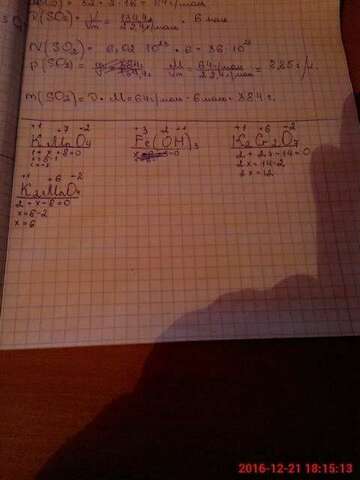 M(SO₂) = 32 + 2 · 16 = 64 г/моль
ν(SO₂) = V/Vm = 134,4л / 22,4л/моль = 6 моль
N(SO₂) = 6,02 · 10²³ · 6 = 36 · 10²³
ρ(SO₂) = M/Vm = 64г/моль / 22,4г/моль = 2,85 г/л.
m(SO₂) = ν · M = 64г/моль · 6 моль = 384 г.
+1 +7 -2
KMnO₄
1 + x - 8 = 0
x = 8 - 1
+3 -2 +1
Fe(OH)₃
+1 +6 -2
K₂Cr₂O₇
2 + 2x - 14 = 0
2x = 14 - 2
2x = 12
+1 +6 -2
K₂MnO₄
2 + x - 8 = 0
x = 8 - 2
x = 6
2016-12-21 18:15:13